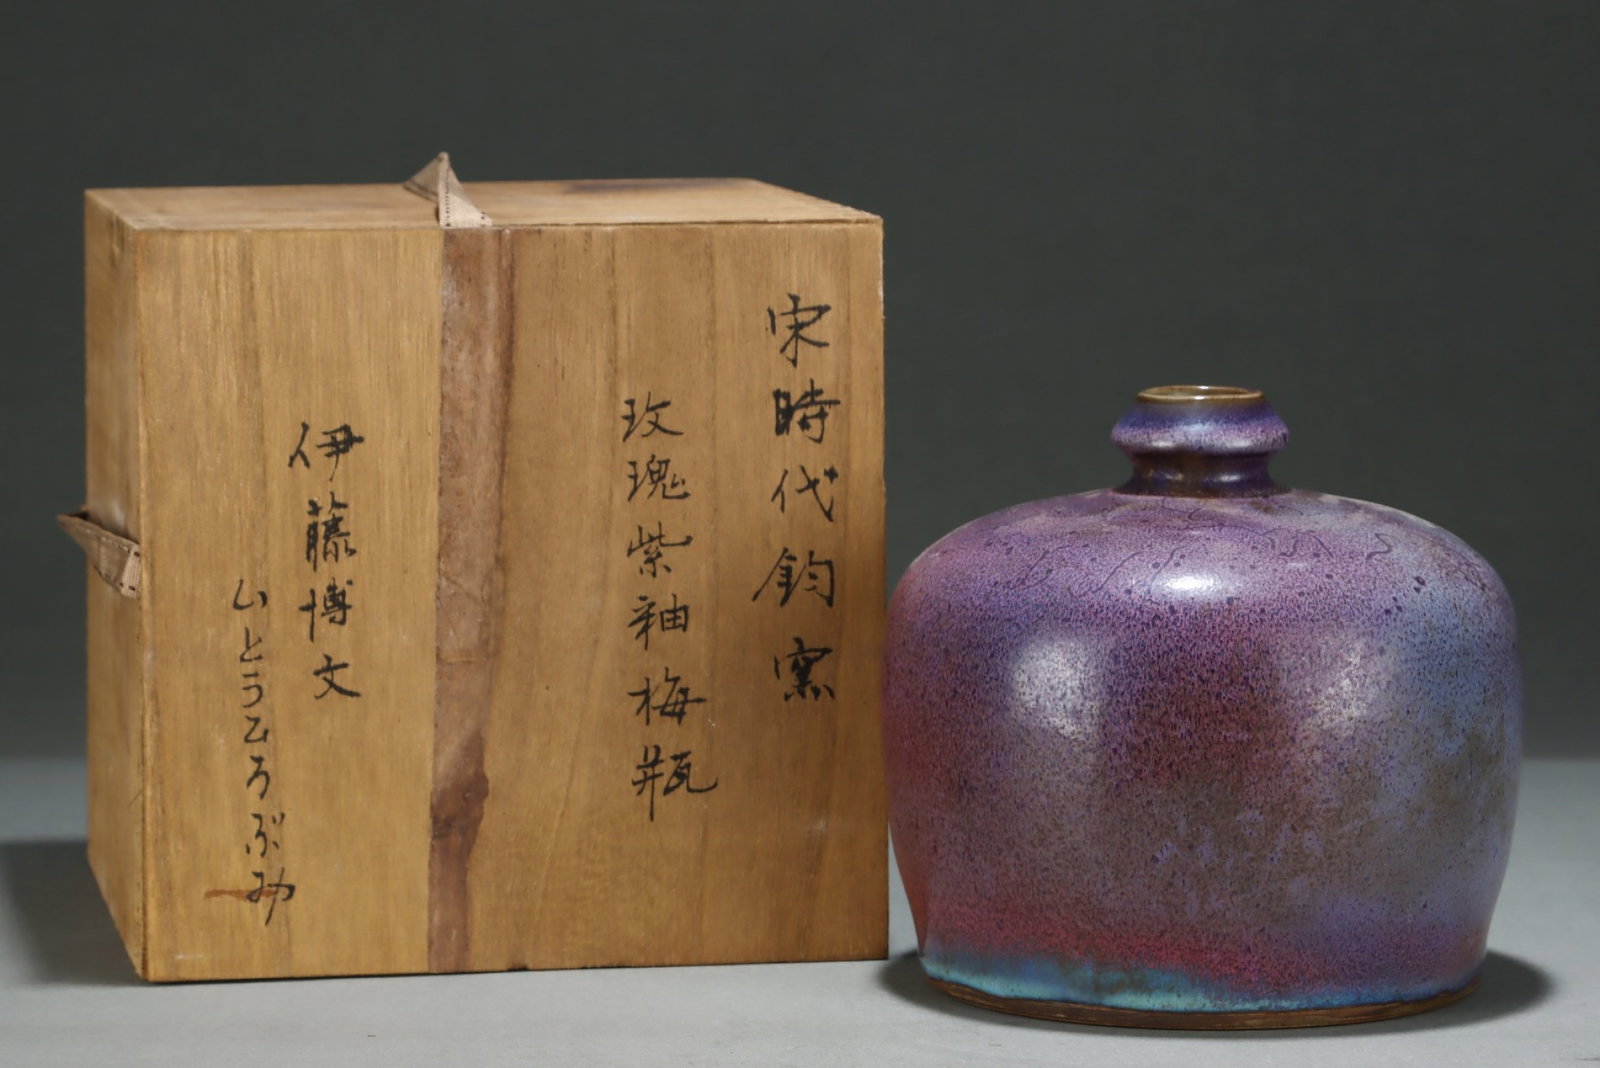 宋時代鈞窯
玫瑰紫釉梅瓶
伊藤博文
いとうひろぶみ